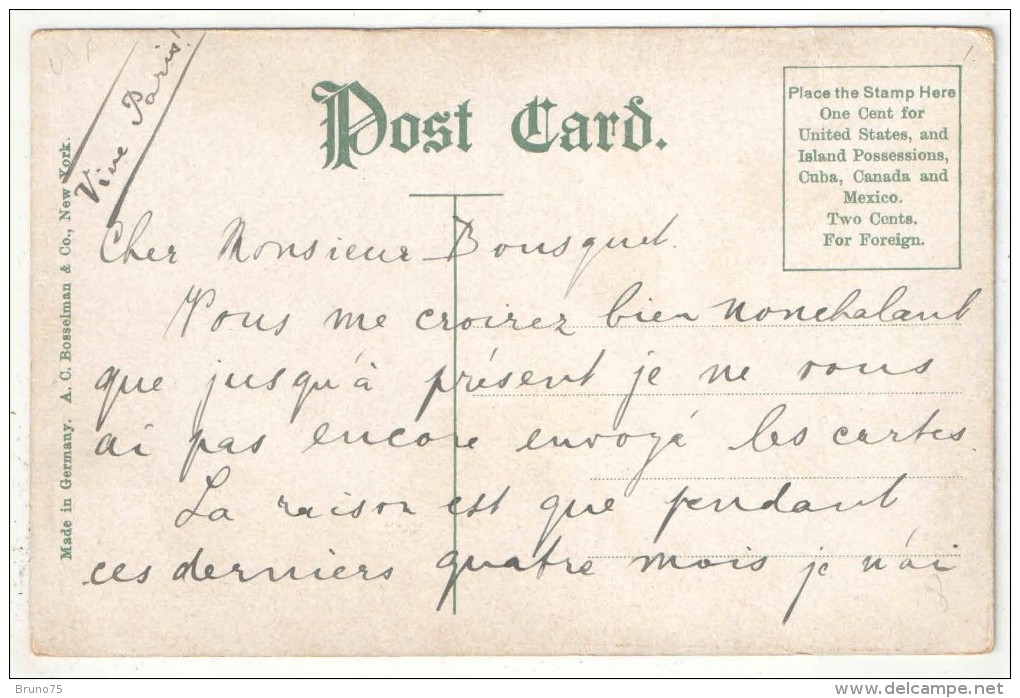 USA
Vive Paris!
Post Card.
Place the Stamp Here
One Cent for
United States, and
Island Possessions,
Cuba, Canada and
Mexico.
Two Cents.
For Foreign.
Made in Germany. A. C. Bosselman & Co., New York.
Cher Monsieur Bousquet.
Vous me croirez bien nonchalant
que jusqu'à présent je ne vous
ai pas encore envoyé les cartes
La raison est que pendant
ces derniers quatre mois je n'ai
Bruno75
www.delcampe.net